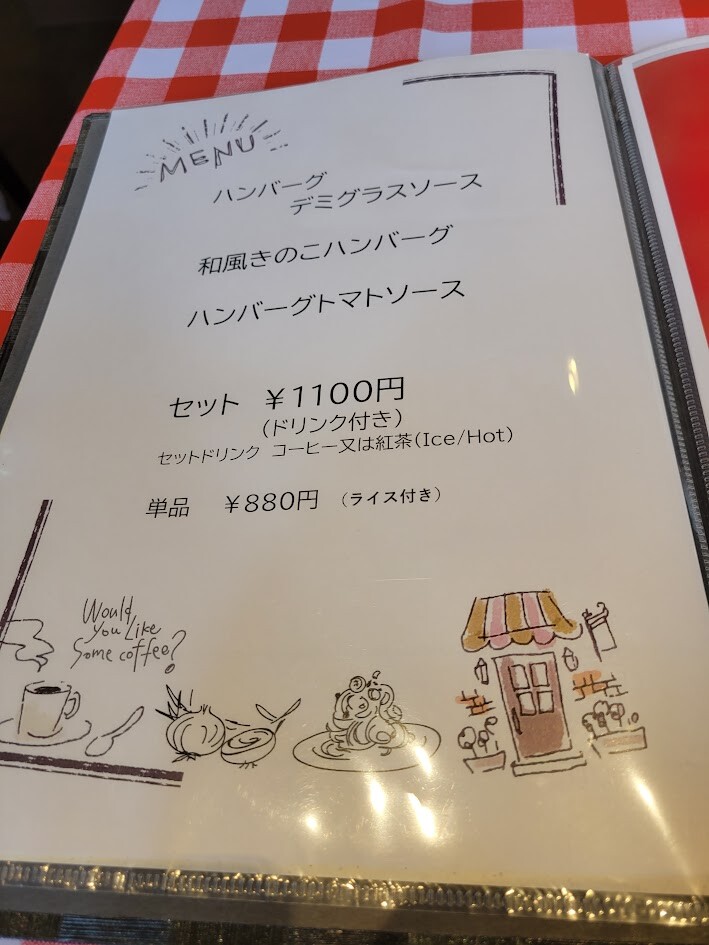 MENU
ハンバーグ
デミグラスソース
和風きのこハンバーグ
ハンバーグトマトソース
セット ￥1100円
(ドリンク付き)
セットドリンク コーヒー又は紅茶(Ice/Hot)
単品 ￥880円 (ライス付き)
Would
you Like
Some coffee?